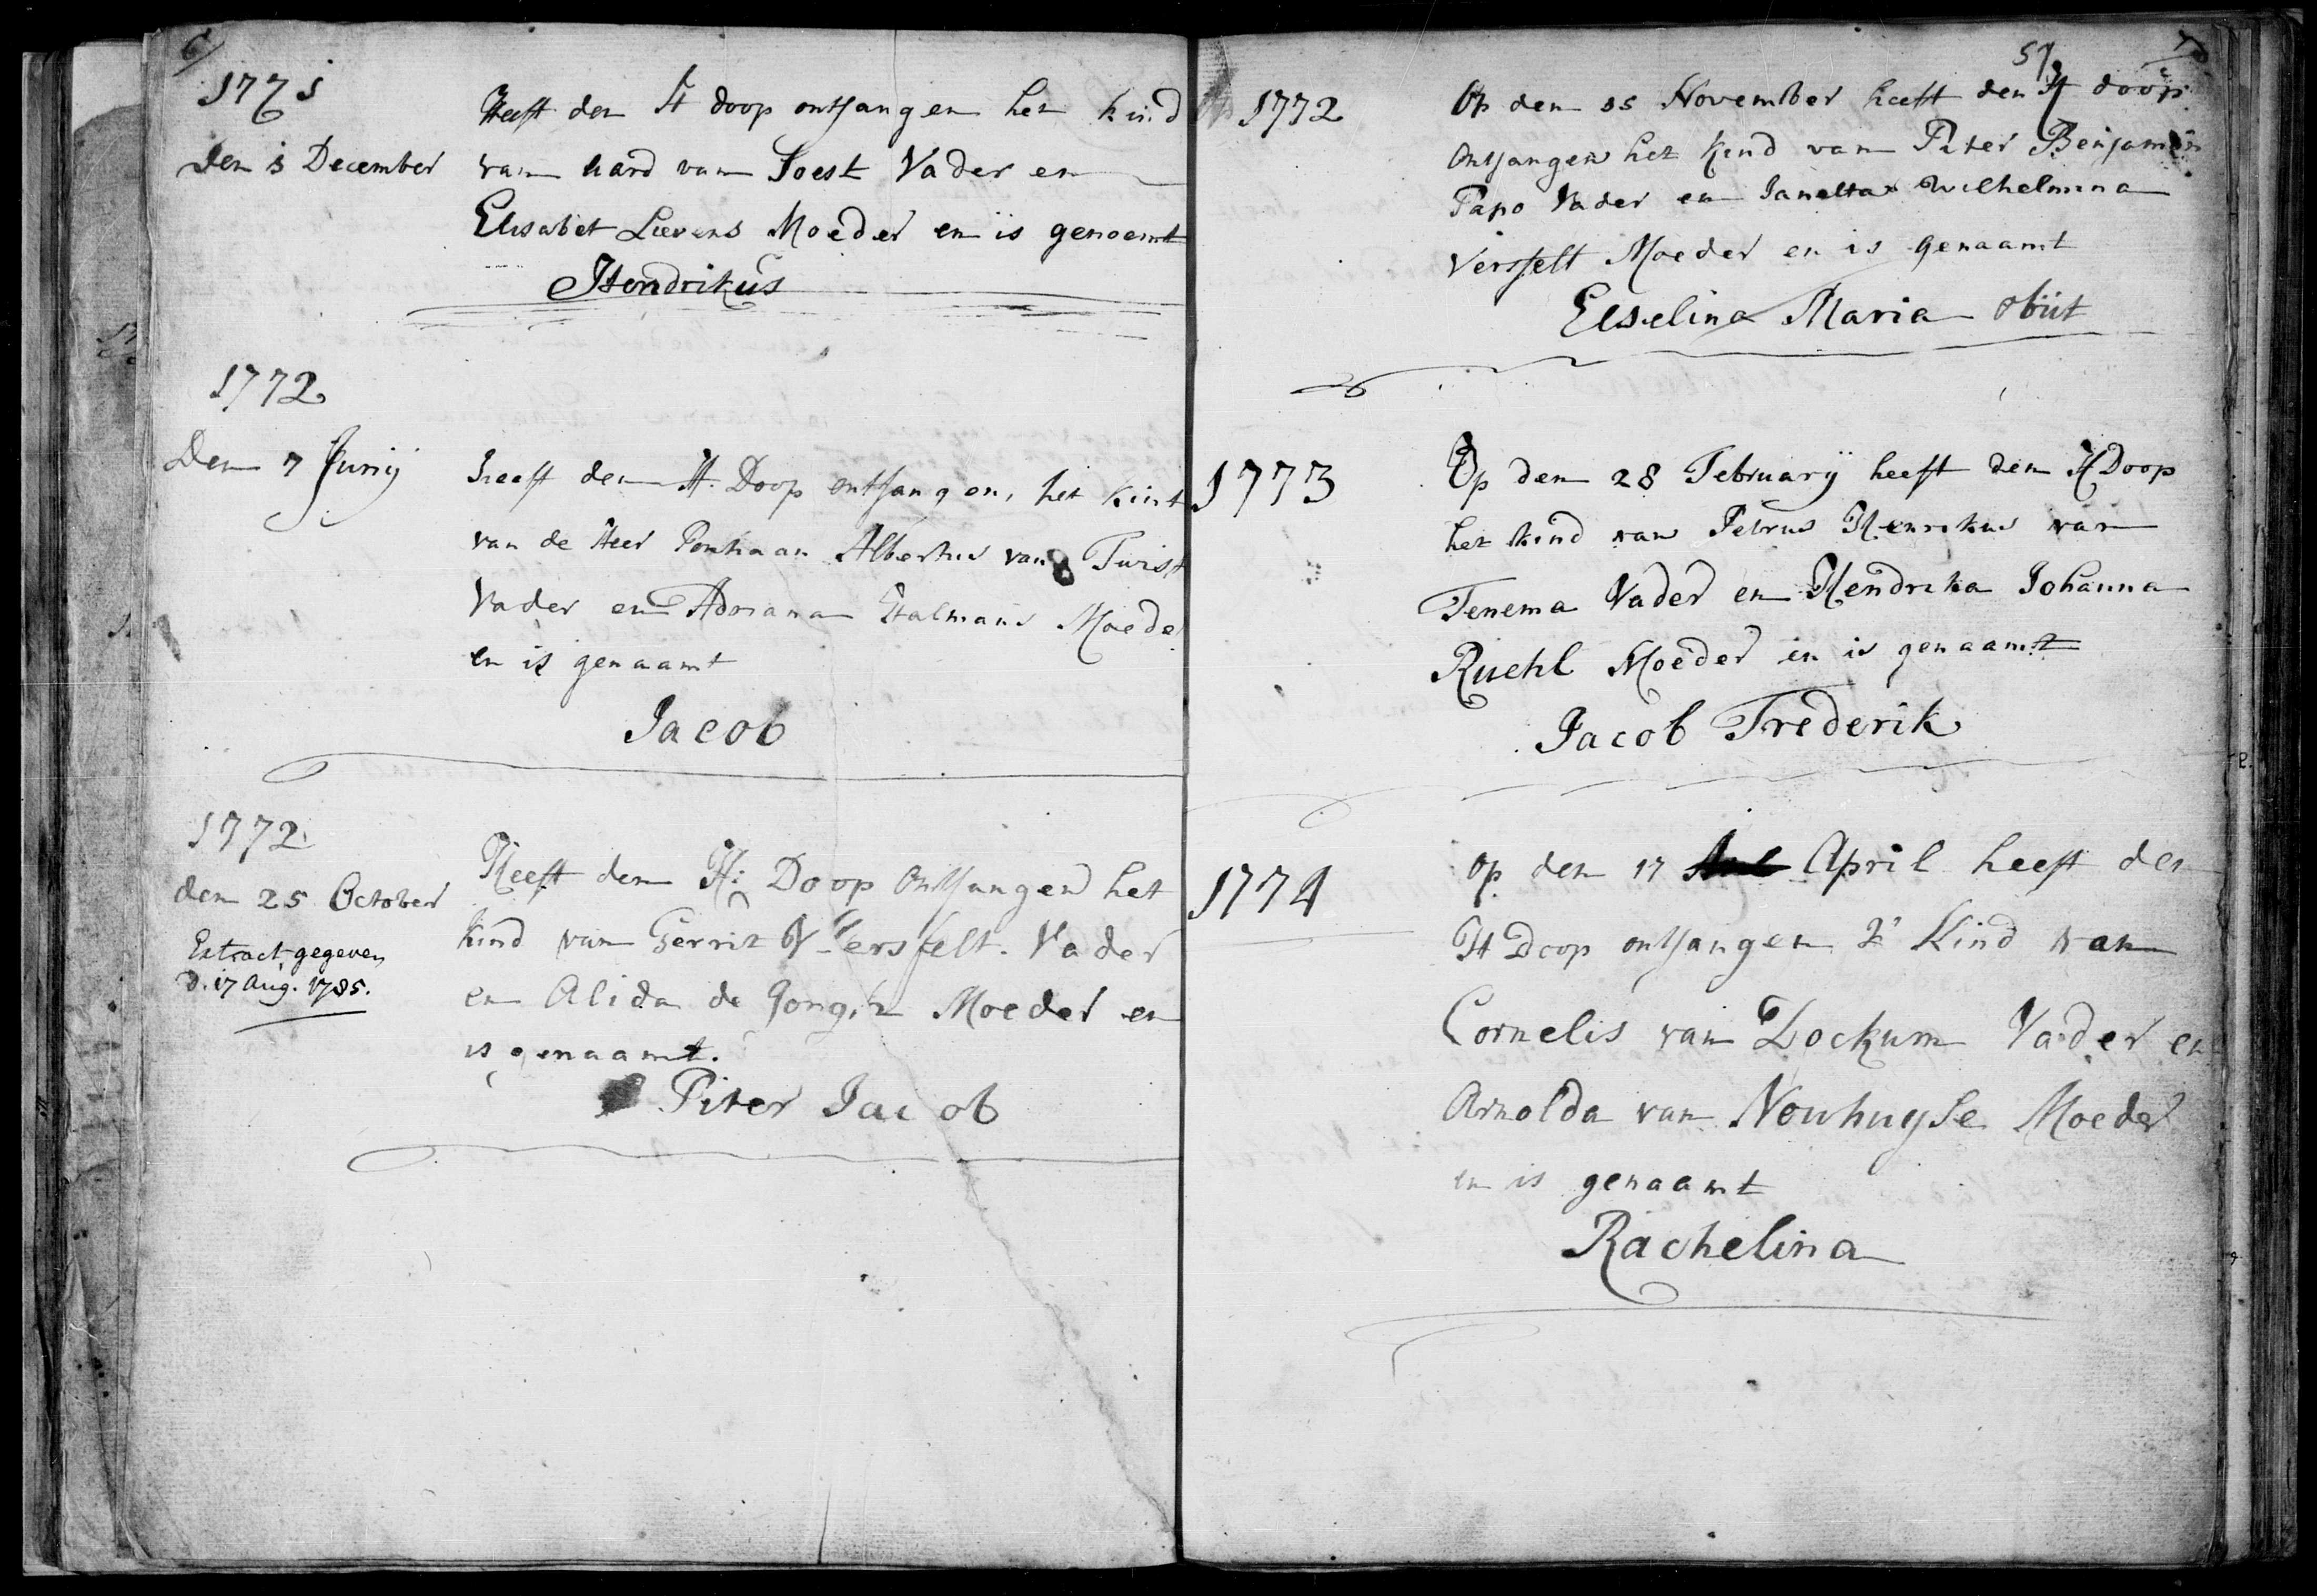 6/
1771
den 1 December
Heeft den H doop ontfangen het kind
van hard van Soest Vader en
Elisabet Lievens Moeder en is genoemt
Hendrikus
1772
Den 7 Junij
heeft den H. Doop ontfangen, het kint
van de Heer Pontiaan Albertus van Twist
Vader en Adriana Halmans Moede
en is genaamt
Jacob
1772
den 25 October
Extract gegeven
d. 17 Aug. 1785.
Heeft den H: Doop Ontfangen het
kind van Gerrit Versfelt. Vader
en Alida de Jongh Moeder en
is genaamt.
Piter Jacob
57
7
1772
Op den 15 November heeft den H doop
Ontfangen het Kind van Piter Benjamin
Papo Vader en Janetta Wilhelmina
Versfelt Moeder en is genaamt
Elselina Maria obiit
1773
Op den 28 February heeft den H Doop
het kind van Petrus Henrikus van
Tenema Vader en Hendrika Johanna
Ruehl Moeder en is genaamt
Jacob Frederik
1774
Op den 17 April heeft den
H Doop ontfangen 't Kind van
Cornelis van Dockum Vader en
Arnolda van Nouhuyse Moeder
en is genaamt
Rachelina